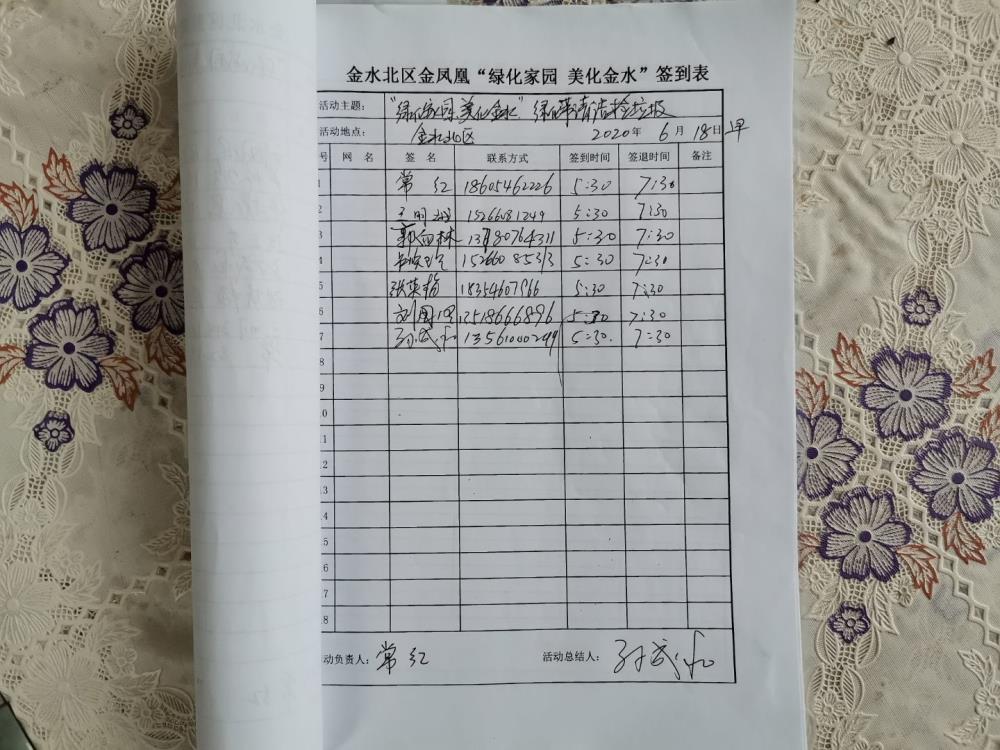 金水北区金凤凰“绿化家园 美化金水”签到表
活动主题： “绿化家园,美化金水” 绿化带清洁捡垃圾
活动地点： 金水北区 2020年 6月 18日 早
号 网 名 签 名 联系方式 签到时间 签退时间 备注
1 常 红 18605462226 5:30 7:30
2 15266081249 5:30 7:30
3 5:30 7:30
4 15266085313 5:30 7:30
5 张荣梅 18354607966 5:30 7:30
6 刘国 5:30 7:30
7 孙武 5:30. 7:30
8
9
10
11
12
13
14
15
16
17
18
动负责人： 常 红 活动总结人： 孙武